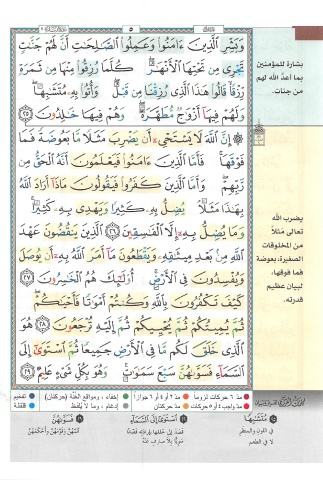 ٥
وَبَشِّرِ ٱلَّذِينَ ءَامَنُوا۟ وَعَمِلُوا۟ ٱلصَّـٰلِحَـٰتِ أَنَّ لَهُمْ جَنَّـٰتٍ
تَجْرِى مِن تَحْتِهَا ٱلْأَنْهَـٰرُ ۖ كُلَّمَا رُزِقُوا۟ مِنْهَا مِن ثَمَرَةٍ
رِّزْقًا قَالُوا۟ هَـٰذَا ٱلَّذِى رُزِقْنَا مِن قَبْلُ ۖ وَأُتُوا۟ بِهِۦ مُتَشَـٰبِهًا ۖ
وَلَهُمْ فِيهَآ أَزْوَٰجٌ مُّطَهَّرَةٌ ۖ وَهُمْ فِيهَا خَـٰلِدُونَ ٢٥
۞ إِنَّ ٱللَّهَ لَا يَسْتَحْىِۦٓ أَن يَضْرِبَ مَثَلًا مَّا بَعُوضَةً فَمَا
فَوْقَهَا ۚ فَأَمَّا ٱلَّذِينَ ءَامَنُوا۟ فَيَعْلَمُونَ أَنَّهُ ٱلْحَقُّ مِن
رَّبِّهِمْ ۖ وَأَمَّا ٱلَّذِينَ كَفَرُوا۟ فَيَقُولُونَ مَاذَآ أَرَادَ ٱللَّهُ
بِهَـٰذَا مَثَلًا ۘ يُضِلُّ بِهِۦ كَثِيرًا وَيَهْدِى بِهِۦ كَثِيرًا ۚ
وَمَا يُضِلُّ بِهِۦٓ إِلَّا ٱلْفَـٰسِقِينَ ٢٦ ٱلَّذِينَ يَنقُضُونَ عَهْدَ
ٱللَّهِ مِنۢ بَعْدِ مِيثَـٰقِهِۦ وَيَقْطَعُونَ مَآ أَمَرَ ٱللَّهُ بِهِۦٓ أَن يُوصَلَ
وَيُفْسِدُونَ فِى ٱلْأَرْضِ ۚ أُو۟لَـٰٓئِكَ هُمُ ٱلْخَـٰسِرُونَ ٢٧
كَيْفَ تَكْفُرُونَ بِٱللَّهِ وَكُنتُمْ أَمْوَٰتًا فَأَحْيَـٰكُمْ ۖ
ثُمَّ يُمِيتُكُمْ ثُمَّ يُحْيِيكُمْ ثُمَّ إِلَيْهِ تُرْجَعُونَ ٢٨ هُوَ
ٱلَّذِى خَلَقَ لَكُم مَّا فِى ٱلْأَرْضِ جَمِيعًا ثُمَّ ٱسْتَوَىٰٓ إِلَى
ٱلسَّمَآءِ فَسَوَّىٰهُنَّ سَبْعَ سَمَـٰوَٰتٍ ۚ وَهُوَ بِكُلِّ شَىْءٍ عَلِيمٌ ٢٩
بشارة للمؤمنين
بما أعدَّ الله لهم
من جنات.
يضرب الله
تعالى مثلاً
من المخلوقات
الصغيرة، بعوضة
فما فوقها،
لبيان عظيم
قدرته.
مد ٦ حركات لزوماً مد ٢ أو ٤ أو ٦ جوازاً إخفاء، ومواقع الغُنَّة (حركتان) تفخيم
مد واجب ٤ أو ٥ حركات مد حركتان إدغام، وما لا يُلفَظ قلقلة
مُتَشَـٰبِهًا
في اللون والمنظر
لا في الطعم
ٱسْتَوَىٰٓ إِلَى ٱلسَّمَآءِ
فَسَوَّىٰهُنَّ